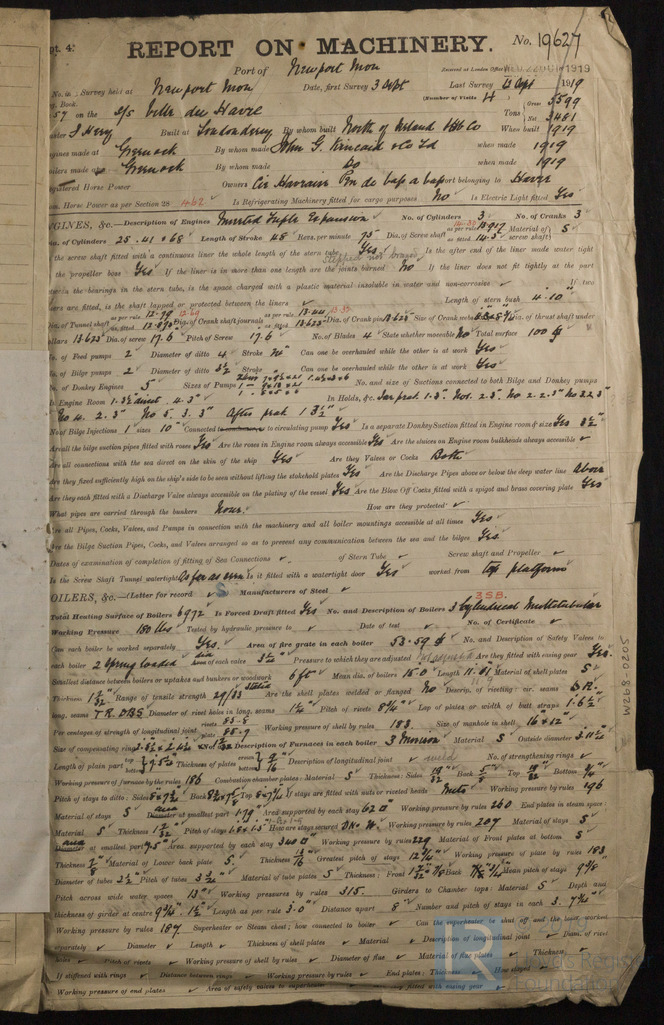 pt. 4.
REPORT ON MACHINERY.
No. 19627
Port of Newport Mon
Received at London Office WED 22 OCT 1919
No. in Survey held at Newport Mon Date, first Survey 3 Sept Last Survey 13 Sept 1919
Book. (Number of Visits 4)
57 on the S/S Ville du Havre Tons Gross 5599 Net 3481
Master J Henry Built at Londonderry By whom built North of Ireland SB Co When built 1919
Engines made at Greenock By whom made John G. Kincaid & Co Ld when made 1919
Boilers made at Greenock By whom made Do when made 1919
Registered Horse Power Owners Port belonging to Havre
Nom. Horse Power as per Section 28 462 Is Refrigerating Machinery fitted for cargo purposes No Is Electric Light fitted Yes
ENGINES, &c.—Description of Engines Inverted Triple Expansion No. of Cylinders 3 No. of Cranks 3
Dia. of Cylinders 25. 41 & 68 Length of Stroke 48 Revs. per minute 75 Dia. of Screw shaft as per rule 13.917 as fitted 14.5 Material of screw shaft S
Is the screw shaft fitted with a continuous liner the whole length of the stern tube Yes Is the after end of the liner made water tight
in the propeller boss Yes If the liner is in more than one length are the joints burned No If the liner does not fit tightly at the part
between the bearings in the stern tube, is the space charged with a plastic material insoluble in water and non-corrosive ✓ If two
liners are fitted, is the shaft lapped or protected between the liners ✓ Length of stern bush 4.10"
Dia. of Tunnel shaft as per rule 12.79 as fitted 12.875 Dia. of Crank shaft journals as per rule 13.44 as fitted 13.625 Dia. of Crank pin 13.625 Size of Crank webs Dia. of thrust shaft under
collars 13.625 Dia. of screw 17.6 Pitch of Screw 17.6 No. of Blades 4 State whether moveable No Total surface 100
No. of Feed pumps 2 Diameter of ditto 4 Stroke 24" Can one be overhauled while the other is at work Yes
No. of Bilge pumps 2 Diameter of ditto 3½ Stroke Can one be overhauled while the other is at work Yes
No. of Donkey Engines 5 Sizes of Pumps No. and size of Suctions connected to both Bilge and Donkey pumps
In Engine Room 1.3½ direct 4.3" In Holds, &c.
No 4. 2.3" No 5. 3.3" After peak 1 3½"
No. of Bilge Injections 1 sizes 10" Connected to circulating pump Yes Is a separate Donkey Suction fitted in Engine room & size Yes 3½"
Are all the bilge suction pipes fitted with roses Yes Are the roses in Engine room always accessible Yes Are the sluices on Engine room bulkheads always accessible ✓
Are all connections with the sea direct on the skin of the ship Yes Are they Valves or Cocks Both
Are they fixed sufficiently high on the ship's side to be seen without lifting the stokehold plates Yes Are the Discharge Pipes above or below the deep water line Above
Are they each fitted with a Discharge Valve always accessible on the plating of the vessel Yes Are the Blow Off Cocks fitted with a spigot and brass covering plate Yes
What pipes are carried through the bunkers None How are they protected ✓
Are all Pipes, Cocks, Valves, and Pumps in connection with the machinery and all boiler mountings accessible at all times Yes
Are the Bilge Suction Pipes, Cocks, and Valves arranged so as to prevent any communication between the sea and the bilges Yes
Dates of examination of completion of fitting of Sea Connections ✓ of Stern Tube ✓ Screw shaft and Propeller ✓
Is the Screw Shaft Tunnel watertight As far as seen Is it fitted with a watertight door Yes worked from top platform
BOILERS, &c.—(Letter for record S) Manufacturers of Steel ✓ 3SB.
Total Heating Surface of Boilers 6972 Is Forced Draft fitted Yes No. and Description of Boilers 3 Cylindrical Multitubular
Working Pressure 180 lbs Tested by hydraulic pressure to ✓ Date of test ✓ No. of Certificate ✓
Can each boiler be worked separately Yes. Area of fire grate in each boiler 53.59 No. and Description of Safety Valves to
each boiler 2 Spring loaded dia of each valve 3½" Pressure to which they are adjusted Are they fitted with easing gear Yes.
Smallest distance between boilers or uptakes and bunkers or woodwork 6 ft Mean dia. of boilers 15.0 Length 11.6 Material of shell plates S
Thickness 1 5/32 Range of tensile strength 29/33 Are the shell plates welded or flanged No Descrip. of riveting: cir. seams D.R.
long. seams T.R.D.B.S Diameter of rivet holes in long. seams 1¼" Pitch of rivets 8¼" Lap of plates or width of butt straps 1.6½"
Per centages of strength of longitudinal joint rivets 85.8 plate 85.9 Working pressure of shell by rules 183 Size of manhole in shell 16 x 12"
Size of compensating ring No. and Description of Furnaces in each boiler 3 Morison Material S Outside diameter 3.11½
Length of plain part Thickness of plates Description of longitudinal joint weld No. of strengthening rings ✓
Working pressure of furnace by the rules 186 Combustion chamber plates: Material S Thickness: Sides 19/32 Back Top 19/32 Bottom ¾"
Pitch of stays to ditto: Sides Back Top If stays are fitted with nuts or riveted heads Nuts Working pressure by rules 196
Material of stays S area at smallest part 1.79 Area supported by each stay 62 Working pressure by rules 260 End plates in steam space
Material S Thickness 1 5/32 Pitch of stays How are stays secured DN. W. Working pressure by rules 207 Material of stays S
area at smallest part Area supported by each stay 340 Working pressure by rules 229 Material of Front plates at bottom S
Thickness 7/8 Material of Lower back plate S. Thickness 13/16 Greatest pitch of stays 12¼" Working pressure of plate by rules 183
Diameter of tubes 2½ Pitch of tubes 3¾" Material of tube plates S Thickness: Front Back Mean pitch of stays 9⅜"
Pitch across wide water spaces 13" Working pressures by rules 315. Girders to Chamber tops: Material S Depth and
thickness of girder at centre Length as per rule 3.0" Distance apart 8" Number and pitch of stays in each 3. 7¾"
Working pressure by rules 187 Superheater or Steam chest; how connected to boiler ✓ Can the superheater be shut off and the boiler worked
separately ✓ Diameter ✓ Length ✓ Thickness of shell plates ✓ Material ✓ Description of longitudinal joint ✓ Diam. of rivet
holes ✓ Pitch of rivets ✓ Working pressure of shell by rules ✓ Diameter of flue ✓ Material of flue plates ✓ Thickness ✓
If stiffened with rings ✓ Distance between rings ✓ Working pressure by rules ✓ End plates: Thickness ✓ How stayed ✓
Working pressure of end plates ✓ Area of safety valves to superheater ✓ fitted with easing gear ✓
W298-0205
Lloyd's Register
Foundation